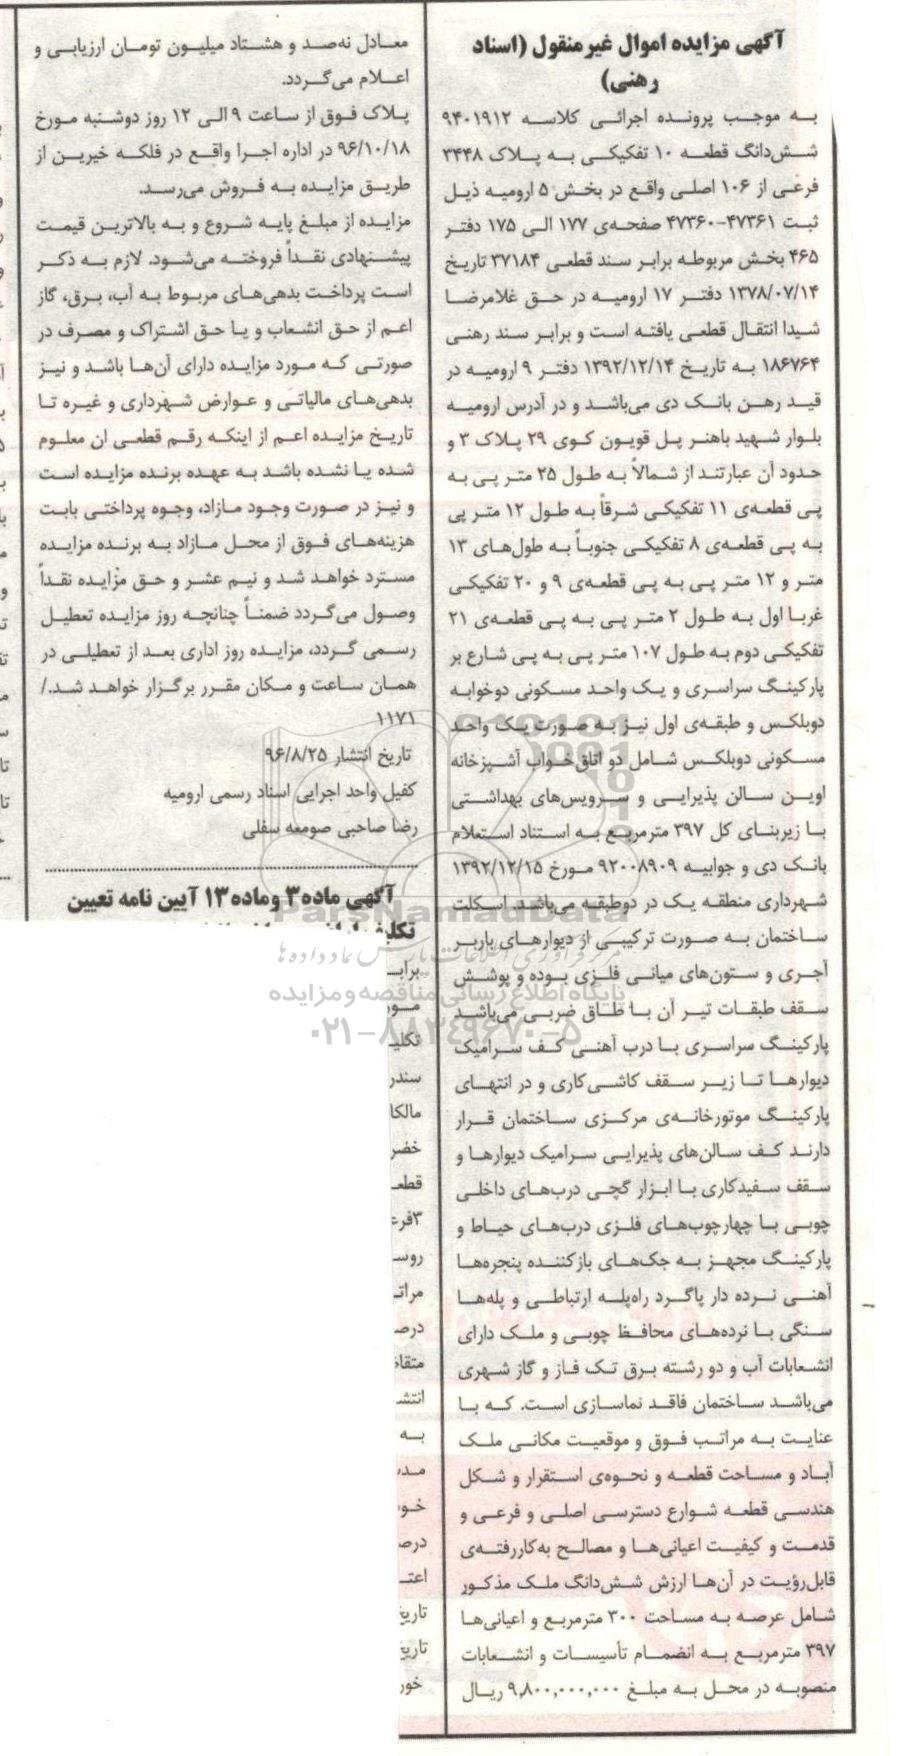 آگهی مزایده اموال غیرمنقول (اسناد
رهنی)
به موجب پرونده اجرائی کلاسه ۹۴۰۱۹۱۲
شش‌دانگ قطعه ۱۰ تفکیکی به پلاک ۳۴۴۸
فرعی از ۱۰۶ اصلی واقع در بخش ۵ ارومیه ذیل
ثبت ۴۷۳۶۱-۴۷۳۶۰ صفحه‌ی ۱۷۷ الی ۱۷۵ دفتر
۴۶۵ بخش مربوطه برابر سند قطعی ۳۷۱۸۴ تاریخ
۱۳۷۸/۰۷/۱۴ دفتر ۱۷ ارومیه در حق غلامرضا
شیدا انتقال قطعی یافته است و برابر سند رهنی
۱۸۶۷۶۴ به تاریخ ۱۳۹۲/۱۲/۱۴ دفتر ۹ ارومیه در
قید رهن بانک دی می‌باشد و در آدرس ارومیه
بلوار شهید باهنر پل قویون کوی ۲۹ پلاک ۳ و
حدود آن عبارتند از شمالاً به طول ۲۵ متر پی به
پی قطعه‌ی ۱۱ تفکیکی شرقاً به طول ۱۲ متر پی
به پی قطعه‌ی ۸ تفکیکی جنوباً به طول‌های ۱۳
متر و ۱۲ متر پی به پی قطعه‌ی ۹ و ۲۰ تفکیکی
غربا اول به طول ۲ متر پی به پی قطعه‌ی ۲۱
تفکیکی دوم به طول ۱۰۷ متر پی به پی شارع بر
پارکینگ سراسری و یک واحد مسکونی دوخوابه
دوبلکس و طبقه‌ی اول نیز به صورت یک واحد
مسکونی دوبلکس شامل دو اتاق‌خواب آشپزخانه
اوپن سالن پذیرایی و سرویس‌های بهداشتی
با زیربنای کل ۳۹۷ مترمربع به استناد استعلام
بانک دی و جوابیه ۹۲۰۰۸۹۰۹ مورخ ۱۳۹۲/۱۲/۱۵
شهرداری منطقه یک در دوطبقه می‌باشد. اسکلت
ساختمان به صورت ترکیبی از دیوارهای باربر
آجری و ستون‌های میانی فلزی بوده و پوشش
سقف طبقات تیر آن با طاق ضربی می‌باشد
پارکینگ سراسری با درب آهنی کف سرامیک
دیوارها تا زیر سقف کاشی‌کاری و در انتهای
پارکینگ موتورخانه‌ی مرکزی ساختمان قرار
دارند کف سالن‌های پذیرایی سرامیک دیوارها و
سقف سفیدکاری با ابزار گچی درب‌های داخلی
چوبی با چهارچوب‌های فلزی درب‌های حیاط و
پارکینگ مجهز به جک‌های بازکننده پنجره‌ها
آهنی نرده دار پاگرد راه‌پله ارتباطی و پله‌ها
سنگی با نرده‌های محافظ چوبی و ملک دارای
انشعابات آب و دو رشته برق تک فاز و گاز شهری
می‌باشد ساختمان فاقد نماسازی است. که با
عنایت به مراتب فوق و موقعیت مکانی ملک
آباد و مساحت قطعه و نحوه‌ی استقرار و شکل
هندسی قطعه شوارع دسترسی اصلی و فرعی و
قدمت و کیفیت اعیانی‌ها و مصالح به‌کاررفته‌ی
قابل‌رؤیت در آن‌ها ارزش شش‌دانگ ملک مذکور
شامل عرصه به مساحت ۳۰۰ مترمربع و اعیانی‌ها
۳۹۷ مترمربع به انضمام تأسیسات و انشعابات
منصوبه در محل به مبلغ ۹٫۸۰۰٫۰۰۰٫۰۰۰ ریال
معادل نه‌صد و هشتاد میلیون تومان ارزیابی و
اعلام می‌گردد.
پلاک فوق از ساعت ۹ الی ۱۲ روز دوشنبه مورخ
۹۶/۱۰/۱۸ در اداره اجرا واقع در فلکه خیرین از
طریق مزایده به فروش می‌رسد.
مزایده از مبلغ پایه شروع و به بالاترین قیمت
پیشنهادی نقداً فروخته می‌شود. لازم به ذکر
است پرداخت بدهی‌های مربوط به آب، برق، گاز
اعم از حق انشعاب و یا حق اشتراک و مصرف در
صورتی که مورد مزایده دارای آن‌ها باشد و نیز
بدهی‌های مالیاتی و عوارض شهرداری و غیره تا
تاریخ مزایده اعم از اینکه رقم قطعی ان معلوم
شده یا نشده باشد به عهده برنده مزایده است
و نیز در صورت وجود مازاد، وجوه پرداختی بابت
هزینه‌های فوق از محل مازاد به برنده مزایده
مسترد خواهد شد و نیم عشر و حق مزایده نقداً
وصول می‌گردد ضمناً چنانچه روز مزایده تعطیل
رسمی گردد، مزایده روز اداری بعد از تعطیلی در
همان ساعت و مکان مقرر برگزار خواهد شد./
۱۱۷۱
تاریخ انتشار ۹۶/۸/۲۵
کفیل واحد اجرایی اسناد رسمی ارومیه
رضا صاحبی صومعه سفلی
آگهی ماده۳ وماده۱۳ آیین نامه تعیین
ParsNamadData
مرکز فرآوری اطلاعات پارس نماد داده ها
پایگاه اطلاع رسانی مناقصه و مزایده
۰۲۱-۸۸۳۴۹۶۷۰-۵